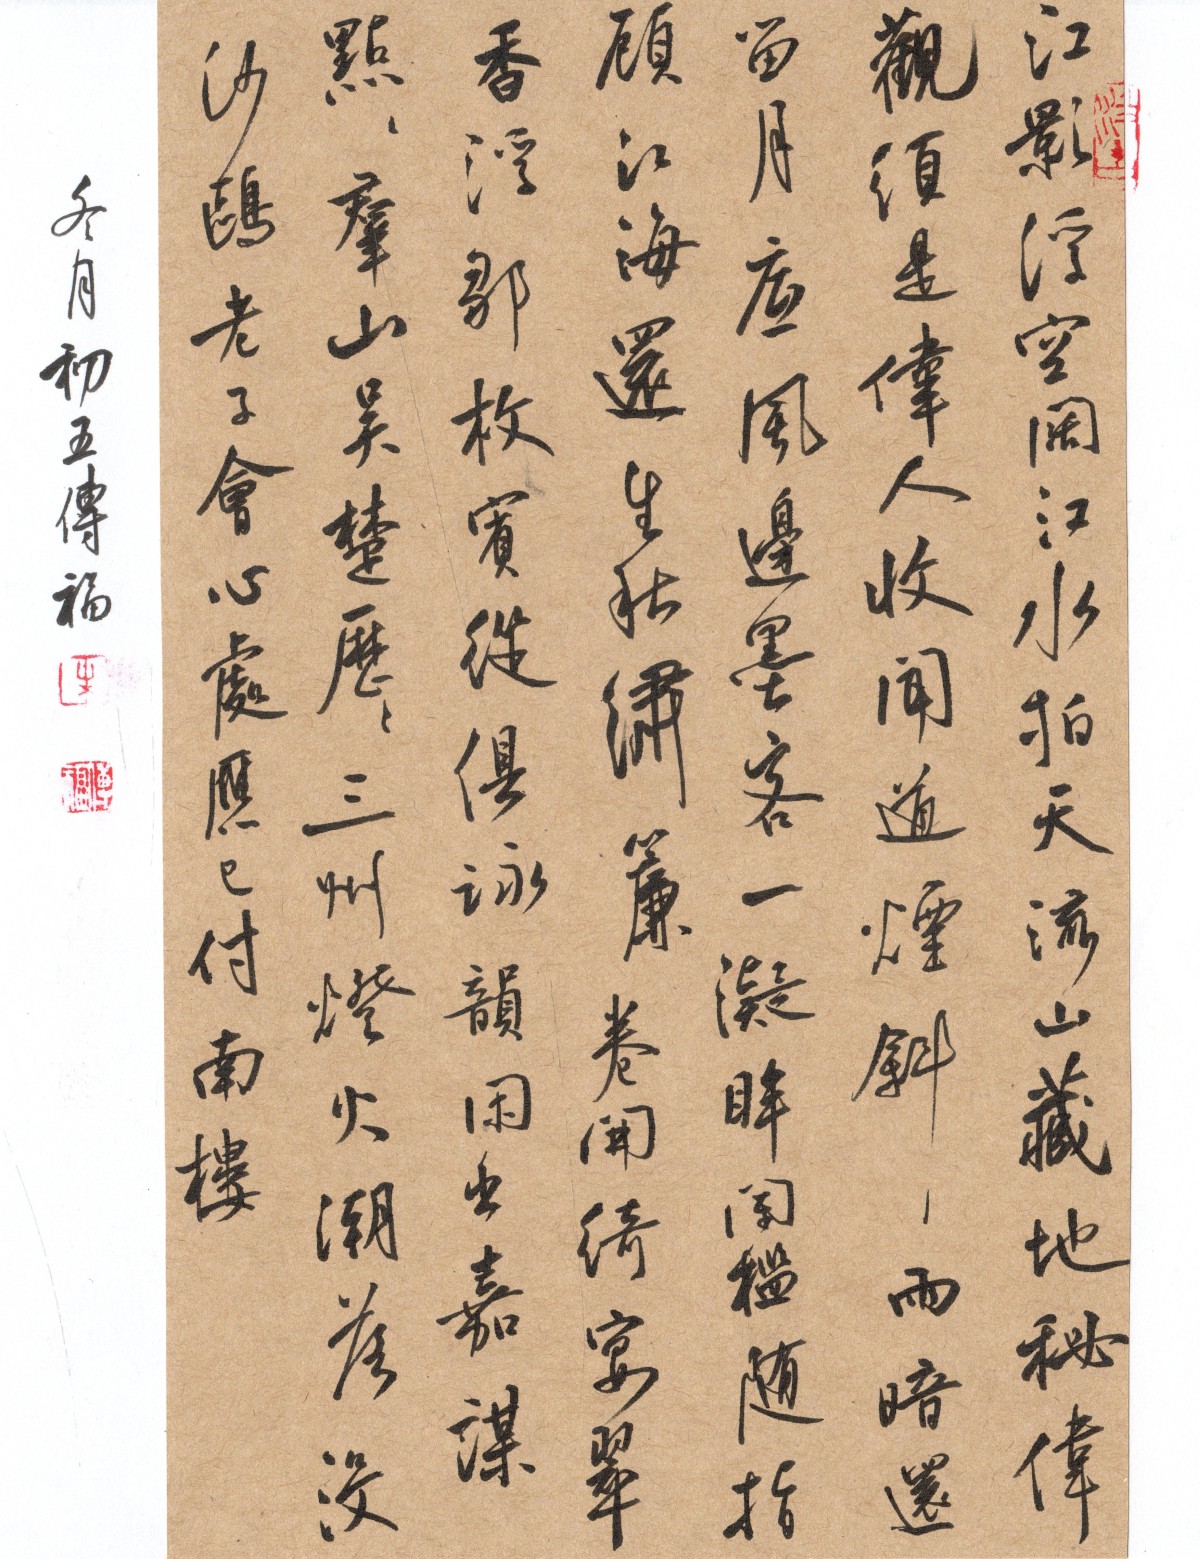 江影浮空闊江水拍天流山藏地秘偉
觀須是偉人收聞道煙斜丶雨暗還
留月底風邊墨客一凝眸闌檻隨指
顧江海還生秋繡簾卷開綺宴翠
香浮鄒枚賓從俱詠韻閑出嘉謀
點丶羣山吳楚歷丶三州燈火潮落沒
沙鷗老子會心處應已付南樓
冬月初五傳福